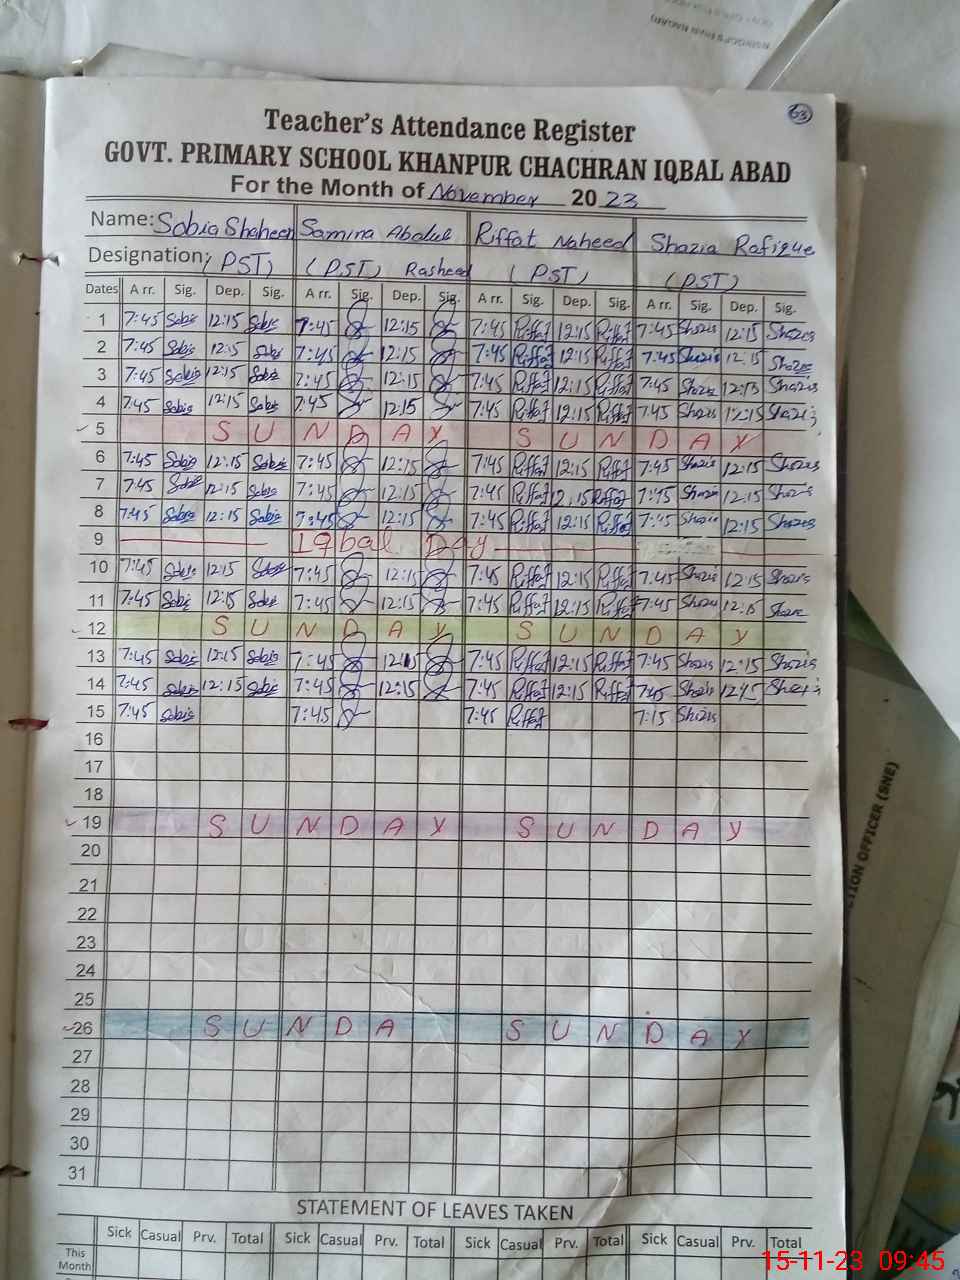 63
Teacher's Attendance Register
GOVT. PRIMARY SCHOOL KHANPUR CHACHRAN IQBAL ABAD
For the Month of November 2023
Name: Sobia Shaheen Samina Abdul Riffat Naheed Shazia Rafique
Designation: (PST) (PST) Rasheed (PST) (PST)
Dates Arr. Sig. Dep. Sig. Arr. Sig. Dep. Sig. Arr. Sig. Dep. Sig. Arr. Sig. Dep. Sig.
1 7:45 Sobia 12:15 Sobia 7:45 12:15 7:45 Riffat 12:15 Riffat 7:45 Shazia 12:15 Shazia
2 7:45 Sobia 12:15 Sobia 7:45 12:15 7:45 Riffat 12:15 Riffat 7:45 Shazia 12:15 Shazia
3 7:45 Sobia 12:15 Sobia 7:45 12:15 7:45 Riffat 12:15 Riffat 7:45 Shazia 12:15 Shazia
4 7:45 Sobia 12:15 Sobia 7:45 12:15 7:45 Riffat 12:15 Riffat 7:45 Shazia 12:15 Shazia
5 SUNDAY SUNDAY
6 7:45 Sobia 12:15 Sobia 7:45 12:15 7:45 Riffat 12:15 Riffat 7:45 Shazia 12:15 Shazia
7 7:45 Sobia 12:15 Sobia 7:45 12:15 7:45 Riffat 12:15 Riffat 7:45 Shazia 12:15 Shazia
8 7:45 Sobia 12:15 Sobia 7:45 12:15 7:45 Riffat 12:15 Riffat 7:45 Shazia 12:15 Shazia
9 Iqbal Day
10 7:45 Sobia 12:15 Sobia 7:45 12:15 7:45 Riffat 12:15 Riffat 7:45 Shazia 12:15 Shazia
11 7:45 Sobia 12:15 Sobia 7:45 12:15 7:45 Riffat 12:15 Riffat 7:45 Shazia 12:15 Shazia
12 SUNDAY SUNDAY
13 7:45 Sobia 12:15 Sobia 7:45 12:15 7:45 Riffat 12:15 Riffat 7:45 Shazia 12:15 Shazia
14 7:45 Sobia 12:15 Sobia 7:45 12:15 7:45 Riffat 12:15 Riffat 7:45 Shazia 12:15 Shazia
15 7:45 Sobia 7:45 7:45 Riffat 7:15 Shazia
16
17
18
19 SUNDAY SUNDAY
20
21
22
23
24
25
26 SUNDA SUNDAY
27
28
29
30
31
STATEMENT OF LEAVES TAKEN
Sick Casual Prv. Total Sick Casual Prv. Total Sick Casual Prv. Total Sick Casual Prv. Total
This Month
OFFICER (SNE)
15-11-23 09:45